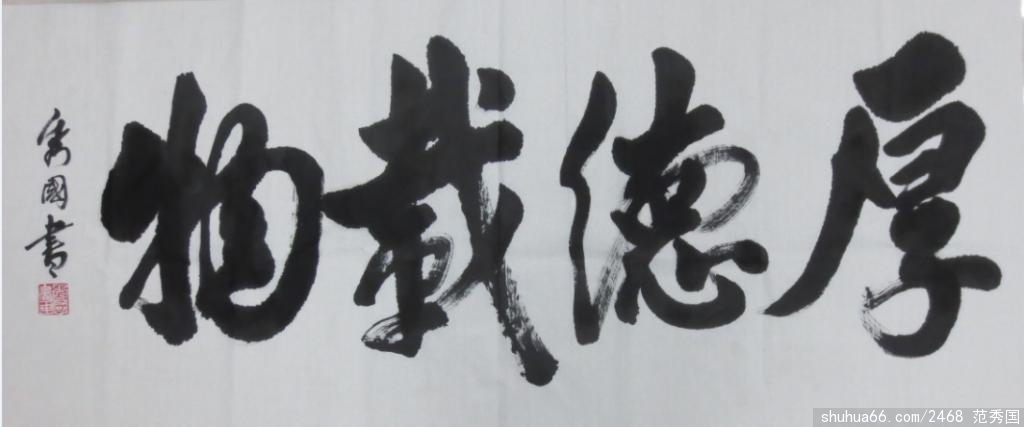 厚德載物
秀國書
shuhua66.com/2468 范秀国